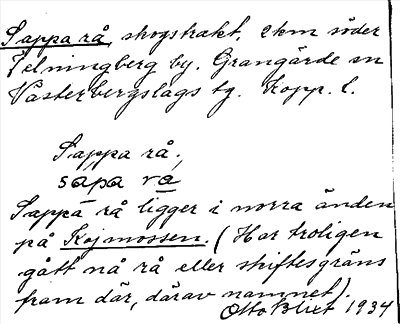 Sappa rå, skogstrakt, 2 km söder
Telningberg by. Grangärde sn
Västerbergslags tg. Kopp. l.
Sappa rå,
sapa ra
Sappa rå ligger i norra änden
på Kojmossen. (Har troligen
gått nå rå eller skiftesgräns
fram där, därav namnet).
Otto Blixt 1934